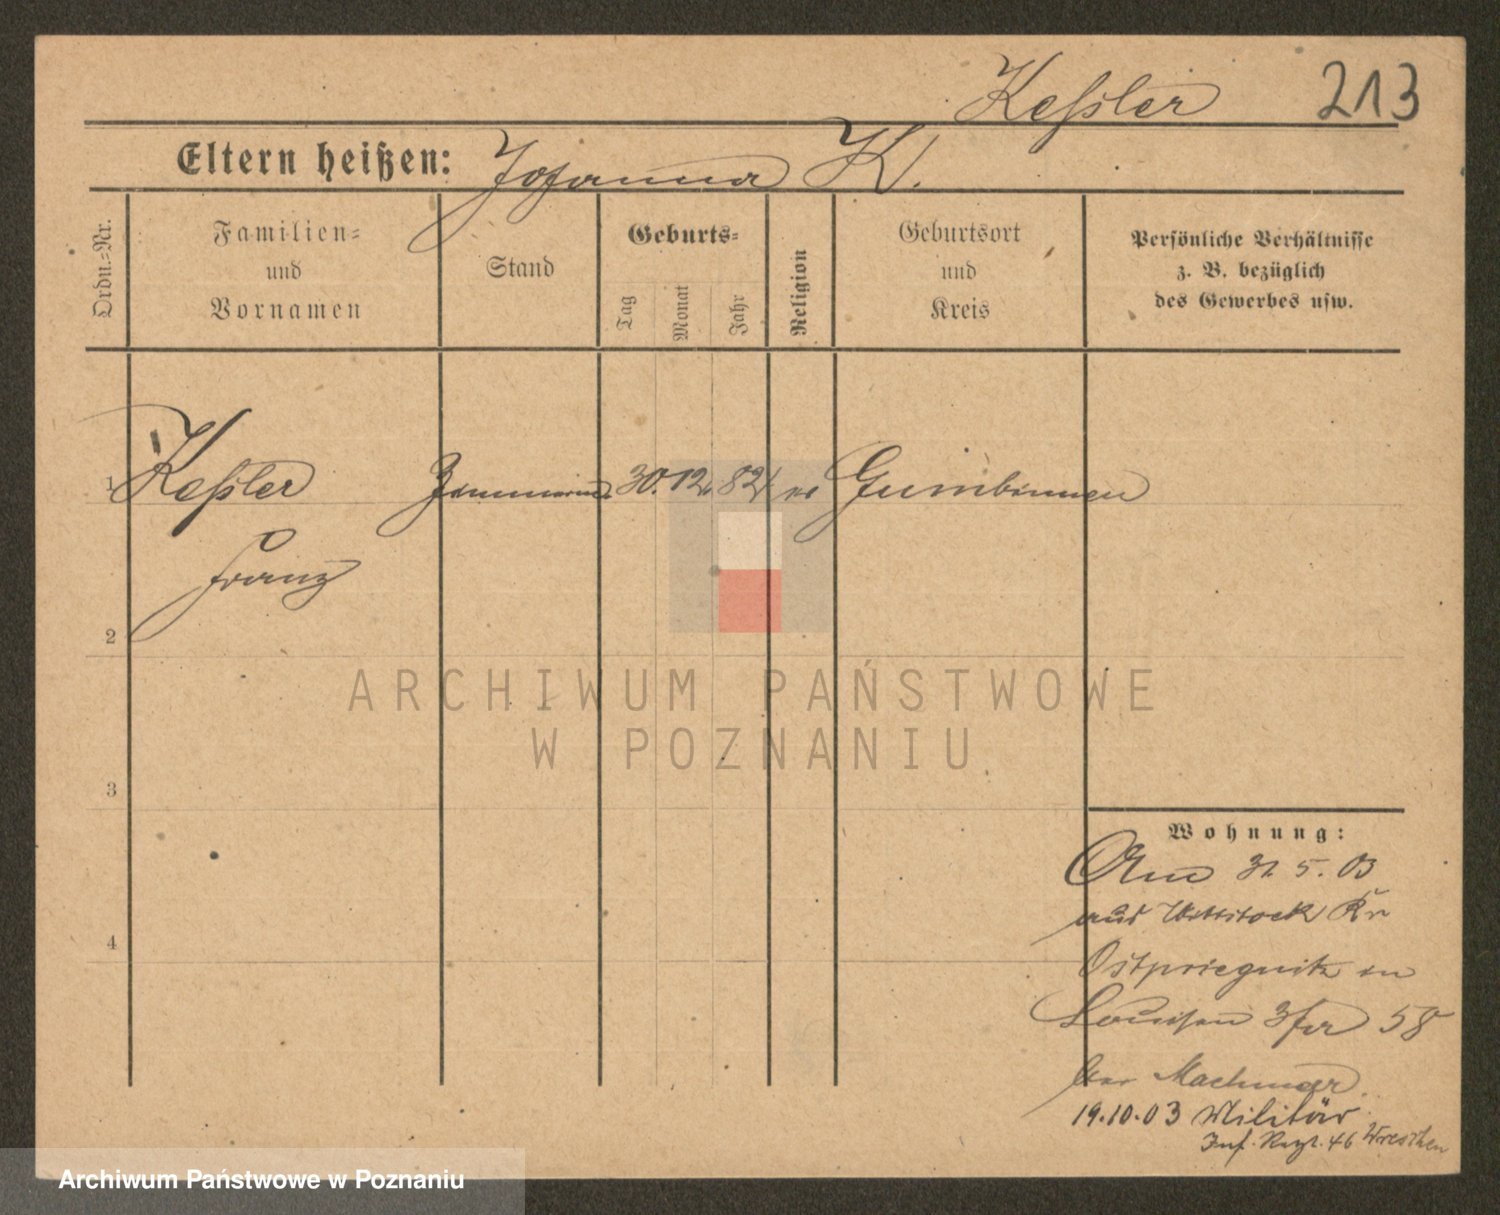 Keßler 213
Eltern heißen: Johanna K.
Ordn.=Nr.
Familien=
und
Vornamen
Stand
Geburts=
Tag
Monat
Jahr
Religion
Geburtsort
und
Kreis
Persönliche Verhältnisse
z. B. bezüglich
des Gewerbes usw.
1 Keßler 30. 12. 82 Gumbinnen
Franz
2
3
4
Wohnung:
Am 31. 5. 03
aus Wittstock Kr
Ostpriegnitz in
Louisen 58
bei Machmar
19.10.03 Militär
Inf. Regt. 46 Wreschen
ARCHIWUM PAŃSTWOWE
W POZNANIU
Archiwum Państwowe w Poznaniu